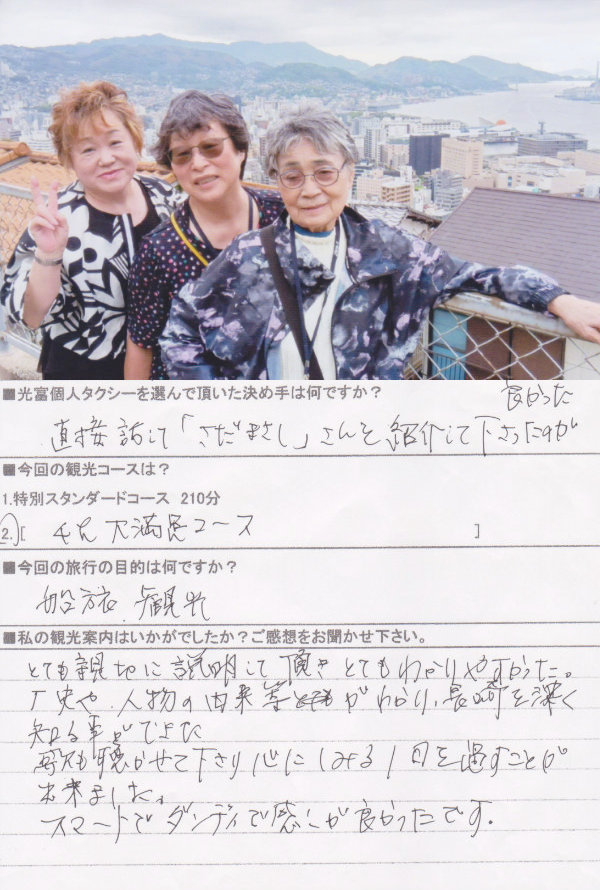 ■光富個人タクシーを選んで頂いた決め手は何ですか？
良かった
直接話して「さだまさし」さんを紹介して下さったのが
■今回の観光コースは？
1.特別スタンダードコース 210分
2.[ 大満足コース ]
■今回の旅行の目的は何ですか？
船旅、観光
■私の観光案内はいかがでしたか？ご感想をお聞かせ下さい。
とても親切に説明して頂きとてもわかりやすかった。
歴史や、人物の由来等がわかり、長崎を深く
知る事ができた
歌も聴かせて下さり心にしみる1日を過すことが
出来ました。
スマートでダンディで感じが良かったです。